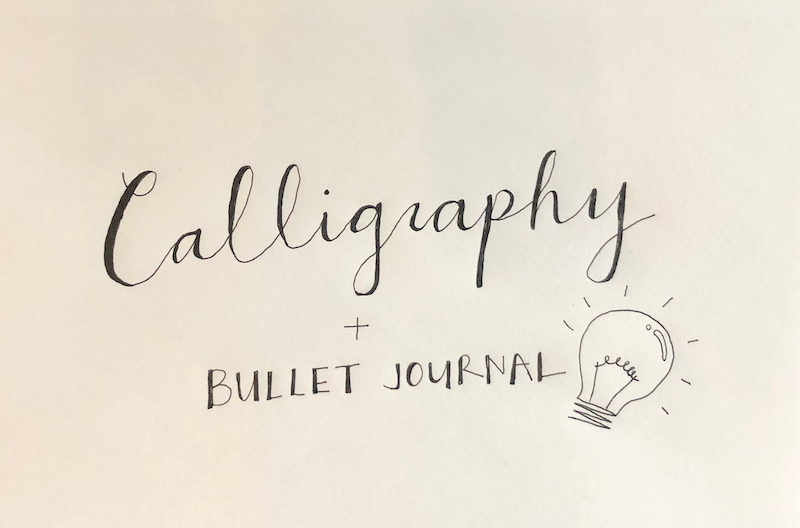 Calligraphy
+
BULLET JOURNAL